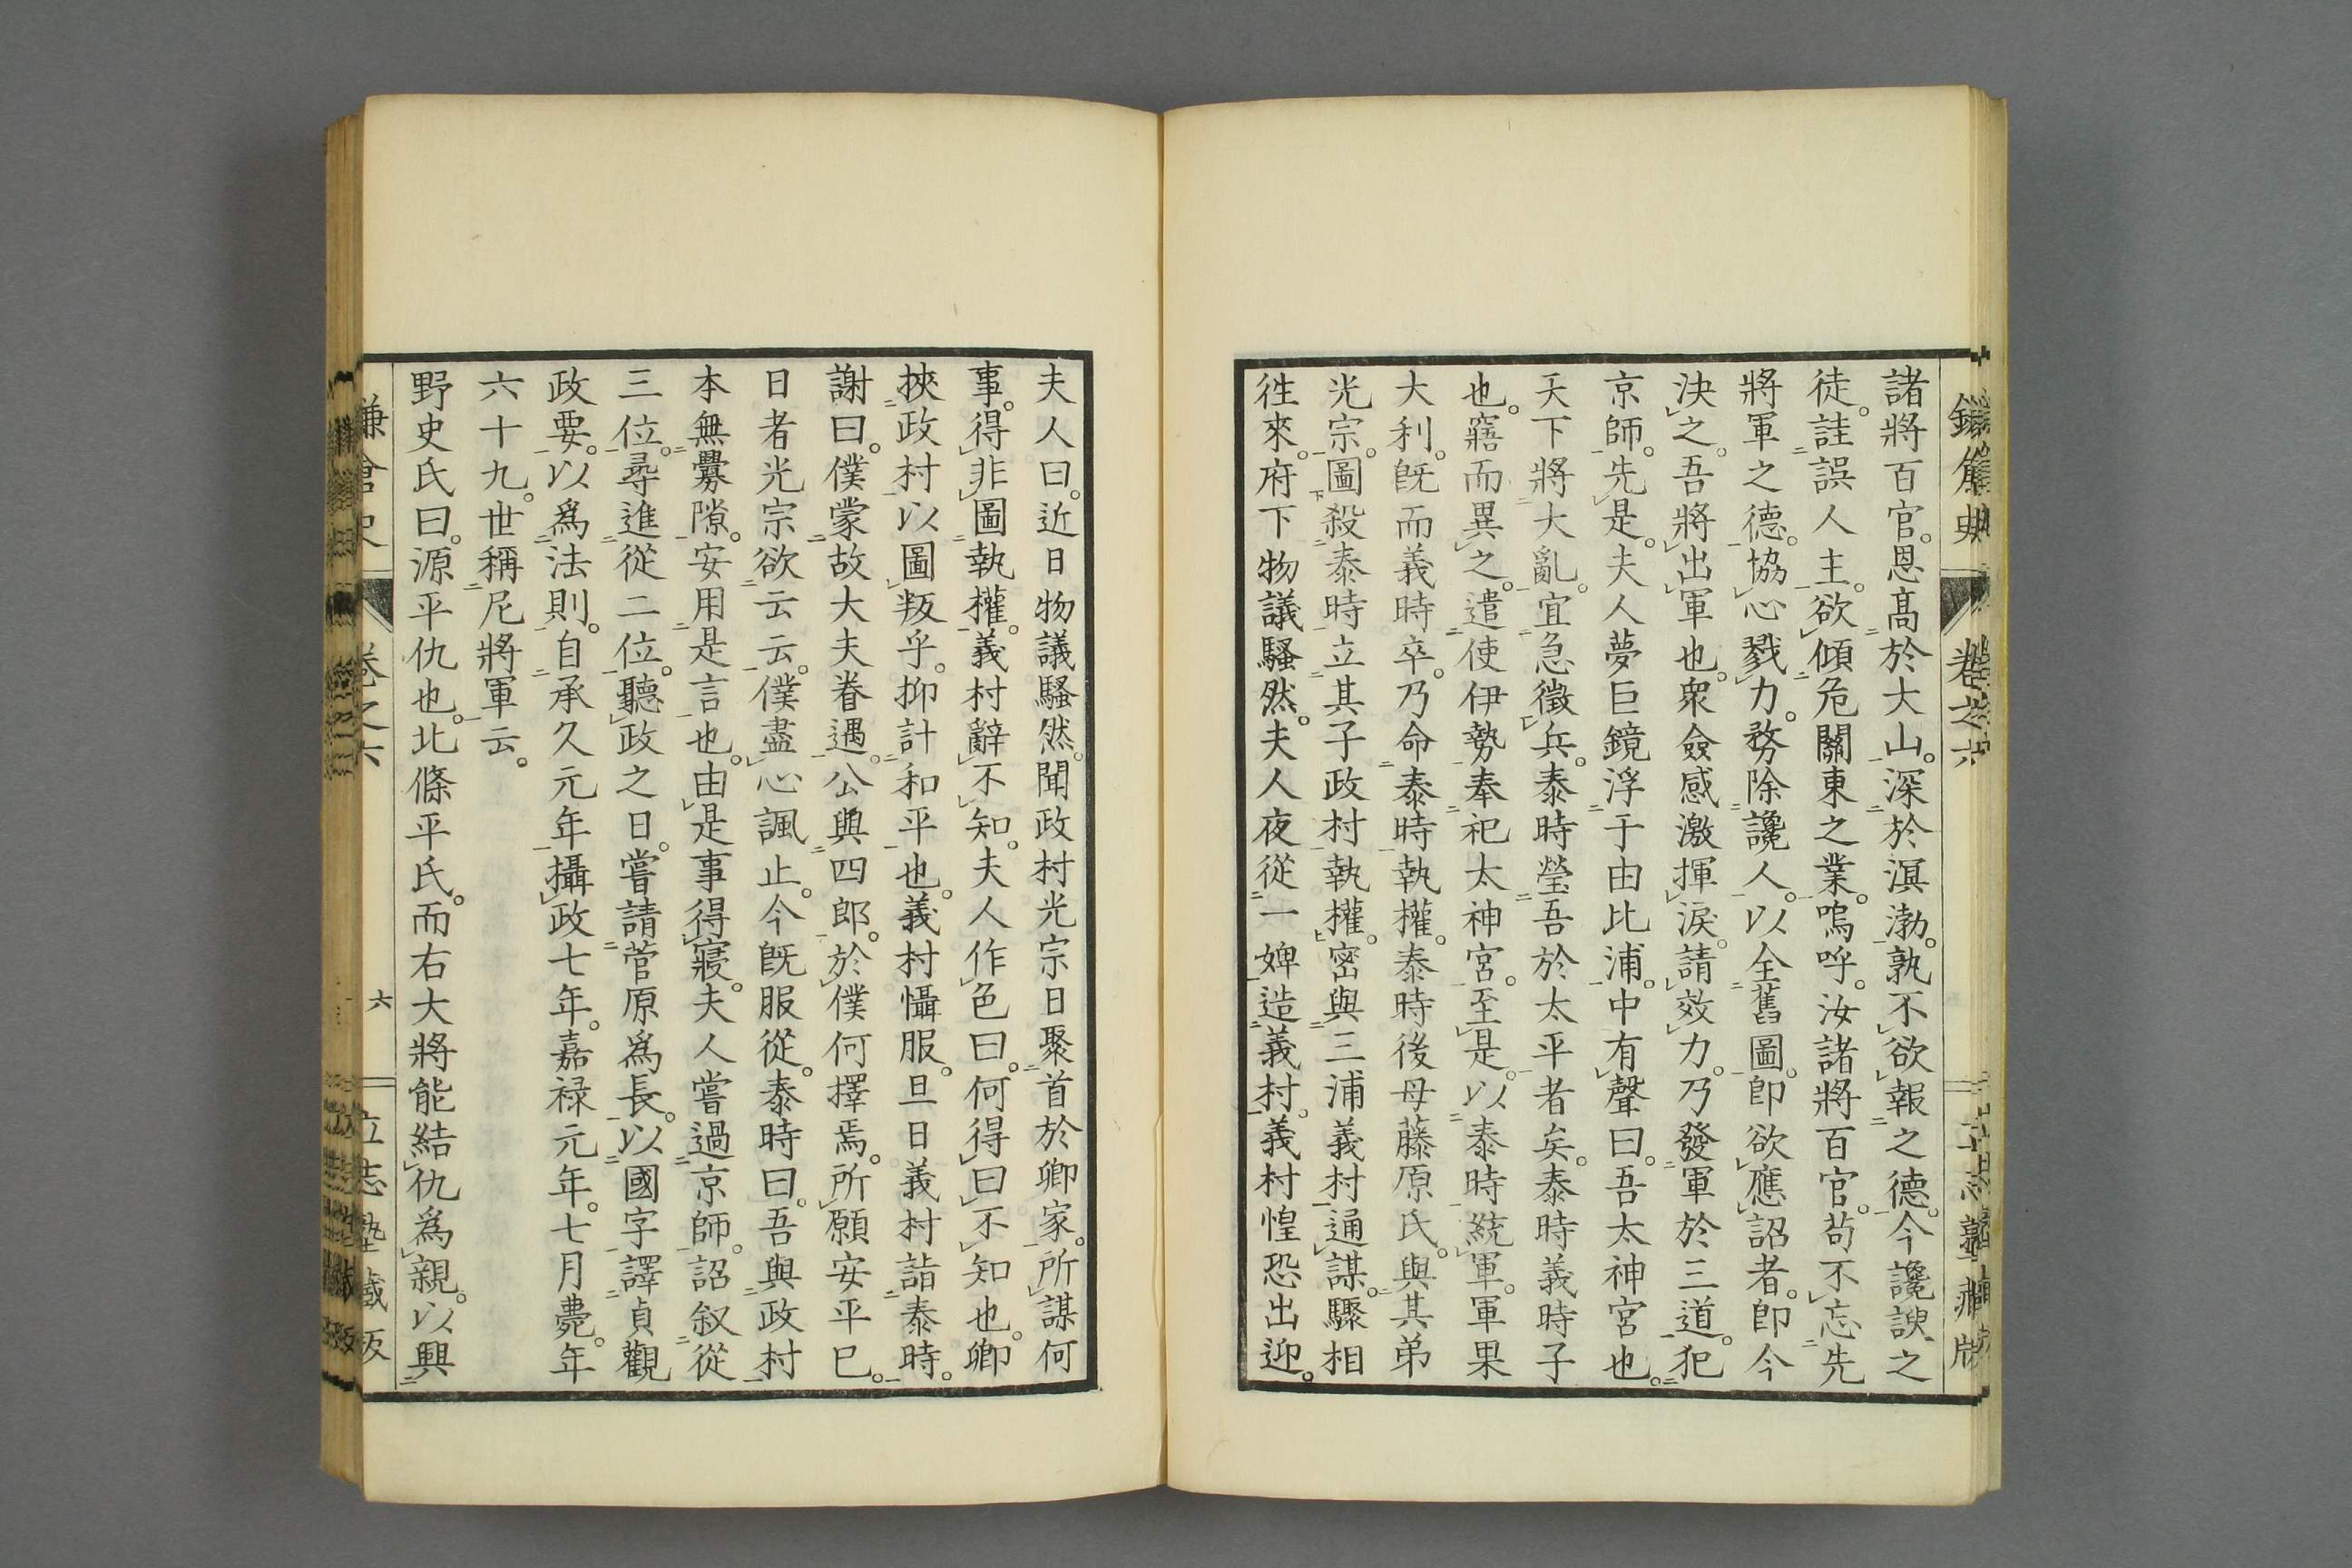 諸將百官。恩髙於大山。深於溟渤。孰不欲報之德。今讒諛之
徒。註誤人主。欲傾危關東之業。嗚呼。汝諸將百官。苟不忘先
將軍之德。協心戮力。務除讒人。以全舊圖。卽欲應詔者。卽今
決之。吾將出軍也。衆僉感激揮淚。請效力。乃發軍於三道。犯
京師。先是。夫人夢巨鏡浮于由比浦。中有聲曰。吾太神宮也。
天下將大亂。宜急徵兵。泰時瑩吾於太平者矣。泰時義時子
也。寤而異之。遣使伊勢奉祀太神宮。至是。以泰時統軍。軍果
大利。旣而義時卒。乃命泰時執權。泰時後母藤原氏。與其弟
光宗。圖殺泰時立其子政村執權。密與三浦義村通謀。驟相
徃來。府下物議騷然。夫人夜從一婢造義村。義村惶恐出迎。
鎌倉史
卷之六
夫人曰。近日物議騷然。聞政村光宗日聚首於卿家。所謀何
事。得非圖執權。義村辭不知。夫人作色曰。何得曰不知也。卿
挾政村以圖叛乎。抑計和平也。義村懾服。旦日義村詣泰時。
謝曰。僕蒙故大夫眷遇。公與四郎。於僕何擇焉。所願安平已。
日者光宗欲云云。僕盡心諷止。今旣服從。泰時曰。吾與政村
本無釁隙。安用是言也。由是事得寢。夫人嘗過京師。詔叙從
三位。尋進從二位。聽政之日。嘗請菅原爲長。以國字譯貞觀
政要。以爲法則。自承久元年攝政七年。嘉禄元年。七月薨。年
六十九。世稱尼將軍云。
野史氏曰。源平仇也。北條平氏。而右大將能結仇爲親。以興
鎌倉史
卷之六
六
立志塾藏版